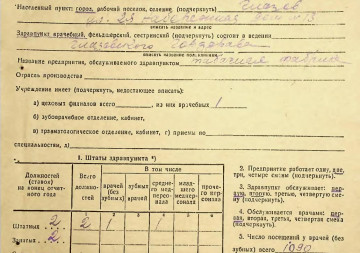 Населенный пункт: город, рабочий поселок, селение, (подчеркнуть) Глазов
ул. 2я набережная дом № 13
вписать название и адрес
Здравпункт врачебный, фельдшерский, сестринский (подчеркнуть) состоит в ведении
Глазовского
вписать название леч. учрежд.
Название предприятия, обслуживаемого здравпунктом фабрика
Отрасль производства
Учреждение имеет (подчеркнуть, недостающее вписать):
а) цеховых филиалов всего , из них врачебных 1
б) зубоврачебное отделение, кабинет,
в) травматологическое отделение, кабинет, г) приемы по
специальности, д)
1. Штаты здравпункта *)
Должностей (ставок) на конец отчетного года
Всего должностей
В том числе
врачей (без зубных)
зубных врачей
среднего медперсонала
младшего медперсонала
прочего персонала
Штатных 2 2 1 1
Занятых 2
2. Предприятие работает одну, две, три, четыре смены (подчеркнуть).
3. Здравпункт обслуживает: первую, вторую, третью, четвертую смену (подчеркнуть).
4. Обслуживается врачами: первая, вторая, третья, четвертая смена (подчеркнуть).
5. Число посещений у врачей (без зубных) всего 1090